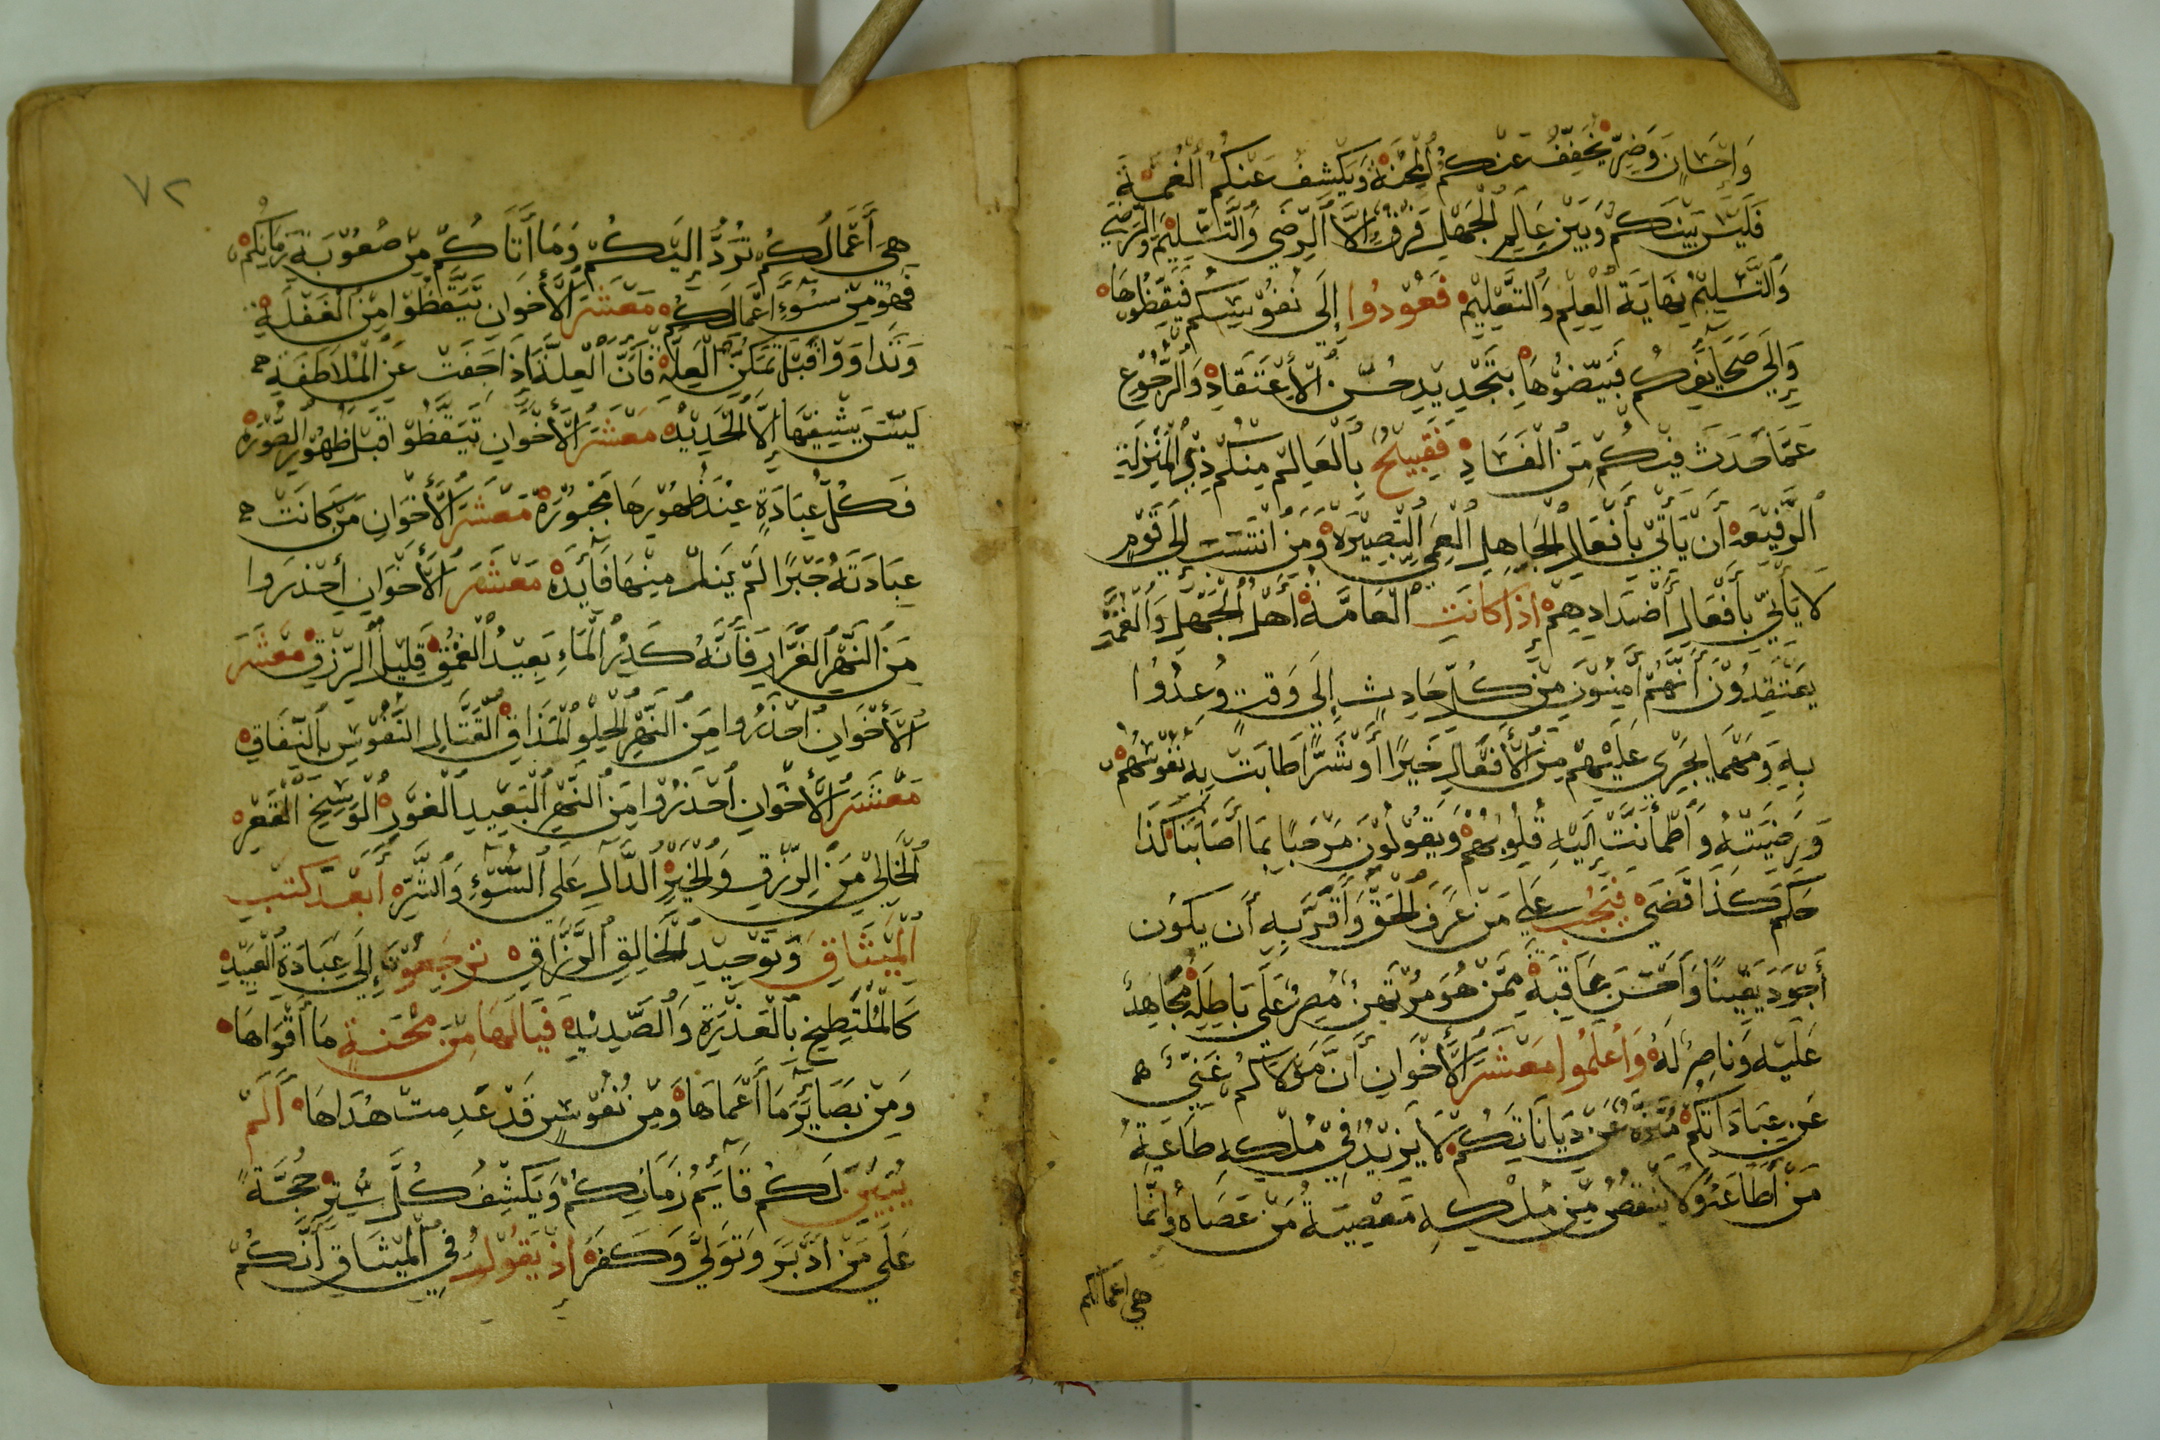 وَاِحْسَانٍ وَضِرٍّ يُخَفِّفُ عَنْكُمُ الْمِحْنَةَ وَيَكْشِفُ عَنْكُمُ الْغُمَّةَ
فَلَيْسَ بَيْنَكُمْ وَبَيْنَ عَالِمِ الْجَهْلِ فَرْقٌ اِلَّا الرِّضَى وَالتَّسْلِيْمْ وَالرِّضَى
وَالتَّسْلِيْمُ نِهَايَةُ الْعِلْمِ وَالتَّعْلِيْمِ فَعُوْدُوا إِلَى نُفُوْسِكُمْ فَيَقِّظُوْهَا
وَإِلَى صَحَايِفِكُمْ فَبَيِّضُوْهَا بِتَجْدِيْدِ حُسْنِ الْأِعْتِقَادِ وَالرُّجُوْعِ
عَمَّا حَدَثَ فِيْكُمْ مِنَ الْفَسَادِ فَقَبِيْحٌ بِالْعَالِمِ مِنْكُمْ ذِيْ الْمَنْزِلَةِ
الرَّفِيْعَهْ أَنْ يَأْتِيْ بِأَفْعَالِ الْجَاهِلِ الْعَمِيِ الْبَصِيْرَةْ وَمَنْ انْتَسَبَ إِلَى قَوْمٍ
لَا يَأْتِيْ بِأَفْعَالِ أَضْدَادِهِمْ إِذَا كَانَتِ الْعَامَّةُ أَهْلُ الْجَهْلِ وَالْغُمَّةِ
يَعْتَقِدُوْنَ أَنَّهُمْ آمِنُوْنَ مِنْ كُلِّ حَادِثٍ إِلَى وَقْتٍ وُعِدُوْا
بِهِ وَمَهْمَا يَجْرِي عَلَيْهِمْ مِنَ الْأَفْعَالِ خَيْرًا أَوْ شَرًّا طَابَتْ بِهِ نُفُوْسُهُمْ
وَرَضِيَتْهُ وَاطْمَأَنَّتْ إِلَيْهِ قُلُوْبُهُمْ وَيَقُوْلُوْنَ مَرْحَبًا بِمَا أَصَابَنَا كَذَا
حَكَمَ كَذَا قَضَى فَيَجِبُ عَلَى مَنْ عَرَفَ الْحَقَّ وَأَقَرَّ بِهِ أَنْ يَكُوْنَ
أَجْوَدَ يَقِيْنًا وَأَحْسَنَ عَاقِبَةً مِمَّنْ هُوَ مُرْتَهِنٌ مُصِرٌّ عَلَى بَاطِلِهْ مُجَاهِدٌ
عَلَيْهِ وَنَاصِرٌ لَهُ وَاعْلَمُوا مَعْشَرَ الْأَخْوَانِ أَنَّ مَوْلَاكُمْ غَنِيٌّ
عَنْ عِبَادَاتِكُمْ مُنَزَّهٌ عَنْ دِيَانَاتِكُمْ لَا يَزِيْدُ فِيْ مُلْكِهِ طَاعَةُ
مَنْ أَطَاعَهُ وَلَا يَنْقُصُ مِنْ مُلْكِهِ مَعْصِيَةُ مَنْ عَصَاهُ وَانَّمَا
هي اعمالكم
٧٢
هِيَ أَعْمَالُكُمْ تُرَدُّ إِلَيْكُمْ وَمَا أَتَاكُمْ مِنْ صُعُوْبَةِ زَمَانِكُمْ
فَهُوَ مِنْ سُوْءِ اعْمَالِكُمْ مَعْشَرَ الْأَخْوَانِ تَيَقَّظُوْا مِنَ الْغَفْلَةِ
وَتَدَاوَوْا قَبْلَ تَمَكُّنِ الْعِلَّةْ فَاَنَّ الْعِلَّةَ اِذَا جَفَتْ عَنِ الْمُلَاطَفَةِ
لَيْسَ يَشْفِيْهَا اِلَّا الْحَدِيْدْ مَعْشَرَ الْأَخْوَانِ تَيَقَّظُوْا قَبْلَ ظُهُوْرِ الصُّوْرَةْ
فَكُلُّ عِبَادَةٍ عِنْدَ ظُهُوْرِهَا مَجْبُوْرَةْ مَعْشَرَ الْأَخْوَانِ مَنْ كَانَتْ
عِبَادَتَهُ جَبْرًا لَمْ يَنَلْ مِنْهَا فَائِدَةْ مَعْشَرَ الْأَخْوَانِ أَحْذَرُوا
مَنَ النَّهْرِ الْغَرَّارِ فَأَنَّهُ كَدِرُ الْمَاءِ بَعِيْدُ الْعُمْقِ قَلِيْلُ الرِّزْقِ مَعْشَرَ
الْأَخْوَانِ احْذَرُوا مِنَ النَّهْرِ الْحِلْوِ الْمَذَاقِ الْقَتَّالِ النُّفُوْسِ بِالنِّفَاقِ
مَعْشَرَ الْأَخْوَانِ أَحْذَرُوْا مِنَ النَّهْرِ الْبَعِيْدِ الْغَوْرِ الْوَسِخِ الْقَعْرِ
الْخَالِيْ مَنَ الرِّزْقِ وَالْخَيْرِ الدَّالِّ عَلَى السُّوْءِ وَالشَّرِّ أَبَعْدَ كَتْبِ
الْمِيْثَاقِ وَتَوْحِيْدِ الْخَالِقِ الرَّزَّاقِ تَرْجِعُوْنَ إِلَى عِبَادَةِ الْعَبِيْدِ
كَالْمُلْتَطِخِ بِالْعَذِرَةِ وَالصَّدِيْدِ فَيَا لَهَا مِنْ مِحْنَةٍ مَا أَقْوَاهَا
وَمِنْ بَصَائِرَ مَا أَعْمَاهَا وَمِنْ نُفُوْسٍ قَدْ عَدِمَتْ هُدَاهَا أَلَمْ
يُبَيِّنْ لَكُمْ قَايِمُ زَمَانِكُمْ وَيَكْشِفْ كُلَّ سِتْرٍ حُجَّةً
عَلَى مَنْ اَدْبَرَ وَتَوَلَّى وَكَفَرَ اِذْ يَقُوْلُ فِي الْمِيْثَاقِ أَنَّكُمْ